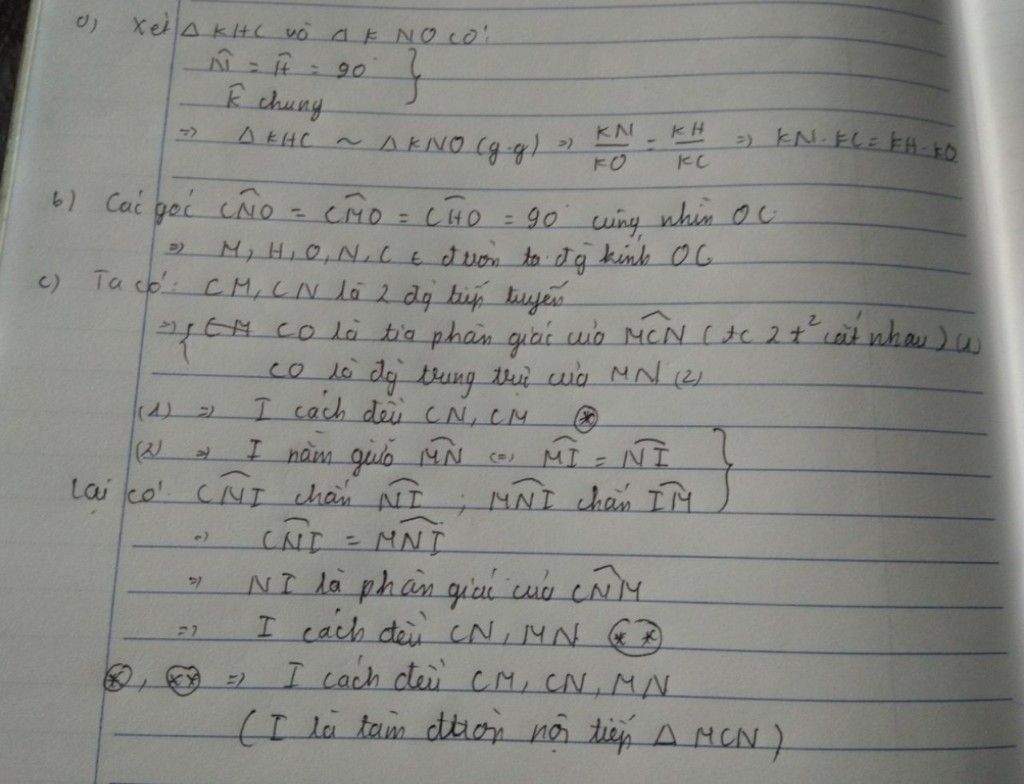 a) Xét Δ KHC và Δ KNO có:
N̂ = Ĥ = 90°
K̂ chung
=> Δ KHC ~ Δ KNO (g.g) => KN/KO = KH/KC => KN.KC = KH.KO
b) Các góc CNO = CMO = CHO = 90° cùng nhìn OC
=> M, H, O, N, C ∈ đườn tr đg kính OC
c) Ta có: CM, CN là 2 đg tiếp tuyến
=> { CM CO là tia phân giác của MCN (tc 2 t² cắt nhau) (1)
CO là đg trung trự của MN (2)
(1) => I cách đều CN, CM (*)
(2) => I nằm giữa MN <=> MI = NI
Lại có CNI chắn NI ; MNI chắn IM
=> CNI = MNI
=> NI là phân giác của CNM
=> I cách đều CN, MN (**)
(*), (**) => I cách đều CM, CN, MN
(I là tâm đườn nội tiếp Δ MCN)